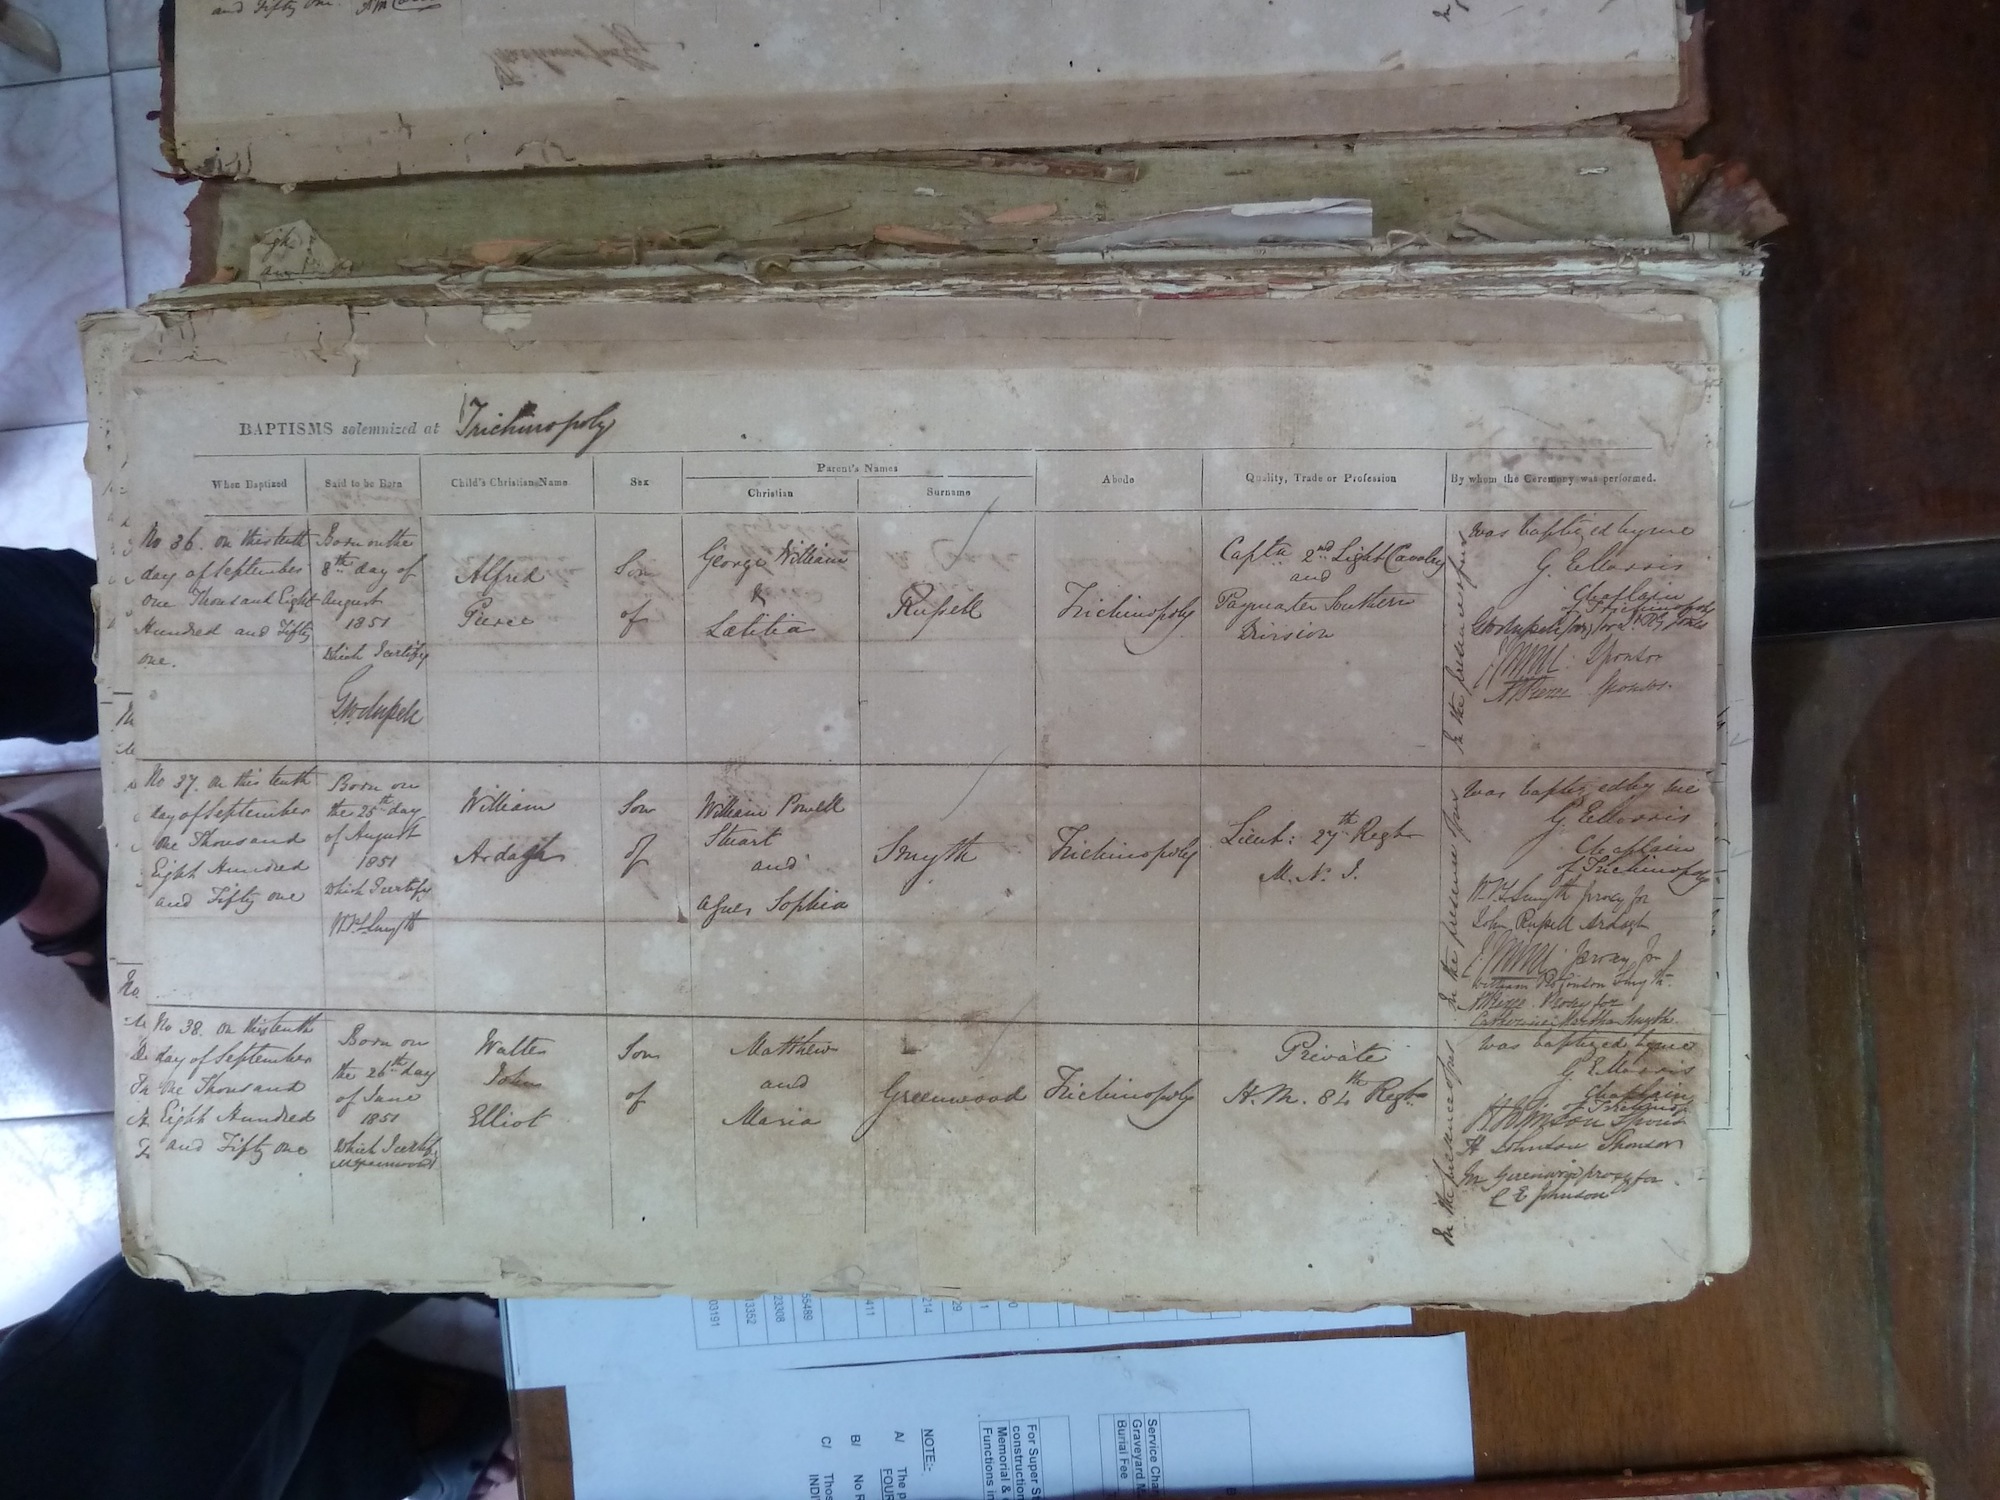 and Fifty One.
BAPTISMS solemnized at Trichinopoly
When Baptized
Said to be Born
Child's Christian Name
Sex
Parent's Names
Christian
Surname
Abode
Quality, Trade or Profession
By whom the Ceremony was performed.
No 36. on this tenth
day of September
One Thousand Eight
Hundred and Fifty
one.
Born on the
8th day of
August
1851
which I certify
Alfred
Pierce
Son
of
George William
&
Lætitia
Russell
Trichinopoly
Captn 2nd Light Cavalry
and
Paymaster Southern
Division
was baptized by me
G. E. Morris
Chaplain
of Trichinopoly
Sponsor
Sponsor
In the presence of us
No 37. on this tenth
day of September
One Thousand
Eight Hundred
and Fifty one
Born on
the 25th day
of August
1851
which I certify
W.P.S. Smyth
William
Ardagh
Son
of
William Powell
Stuart
and
Agnes Sophia
Smyth
Trichinopoly
Lieut: 27th Regt
M. N. I.
was baptized by me
G. E. Morris
Chaplain
of Trichinopoly
Smyth proxy for
John Russell Ardagh
William Smyth
Proxy for
Catherine Martha Smyth
In the presence of us
No 38. on this tenth
day of September
One Thousand
Eight Hundred
and Fifty one
Born on
the 26th day
of June
1851
Which I certify
Walter
John
Elliot
Son
of
Matthew
and
Maria
Greenwood
Trichinopoly
Private
H. M. 84th Regt
was baptized by me
G. E. Morris
Chaplain
of Trichinop
H Johnson Sponsor
Greenwood proxy for
C E Johnson
In the presence of us
03191
13352
23308
55489
411
214
29
11
0
NOTE:-
A/ The p
FOUR
B/ No R
C/ Thos
INDI
For Super St
construction
Memorial &
Functions in
Service Char
Graveyard M
Burial Fee